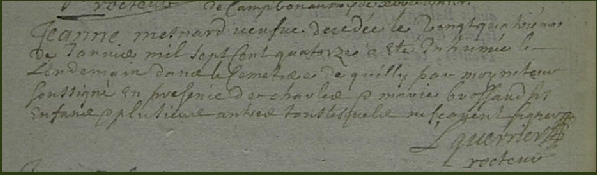 recteur de Campbon
Jeanne mesnard veufue decedée le vingt quatriesme
de Janvier mil sept Cent quatorze a esté Inhumée le
Lendemain dans le Cemetiere de quilly par moy recteur
soussigné En presence de charles & marie brossaud ses
Enfans & plusieurs autres tous lesquels ne sçavent signer
L guerrier
recteur